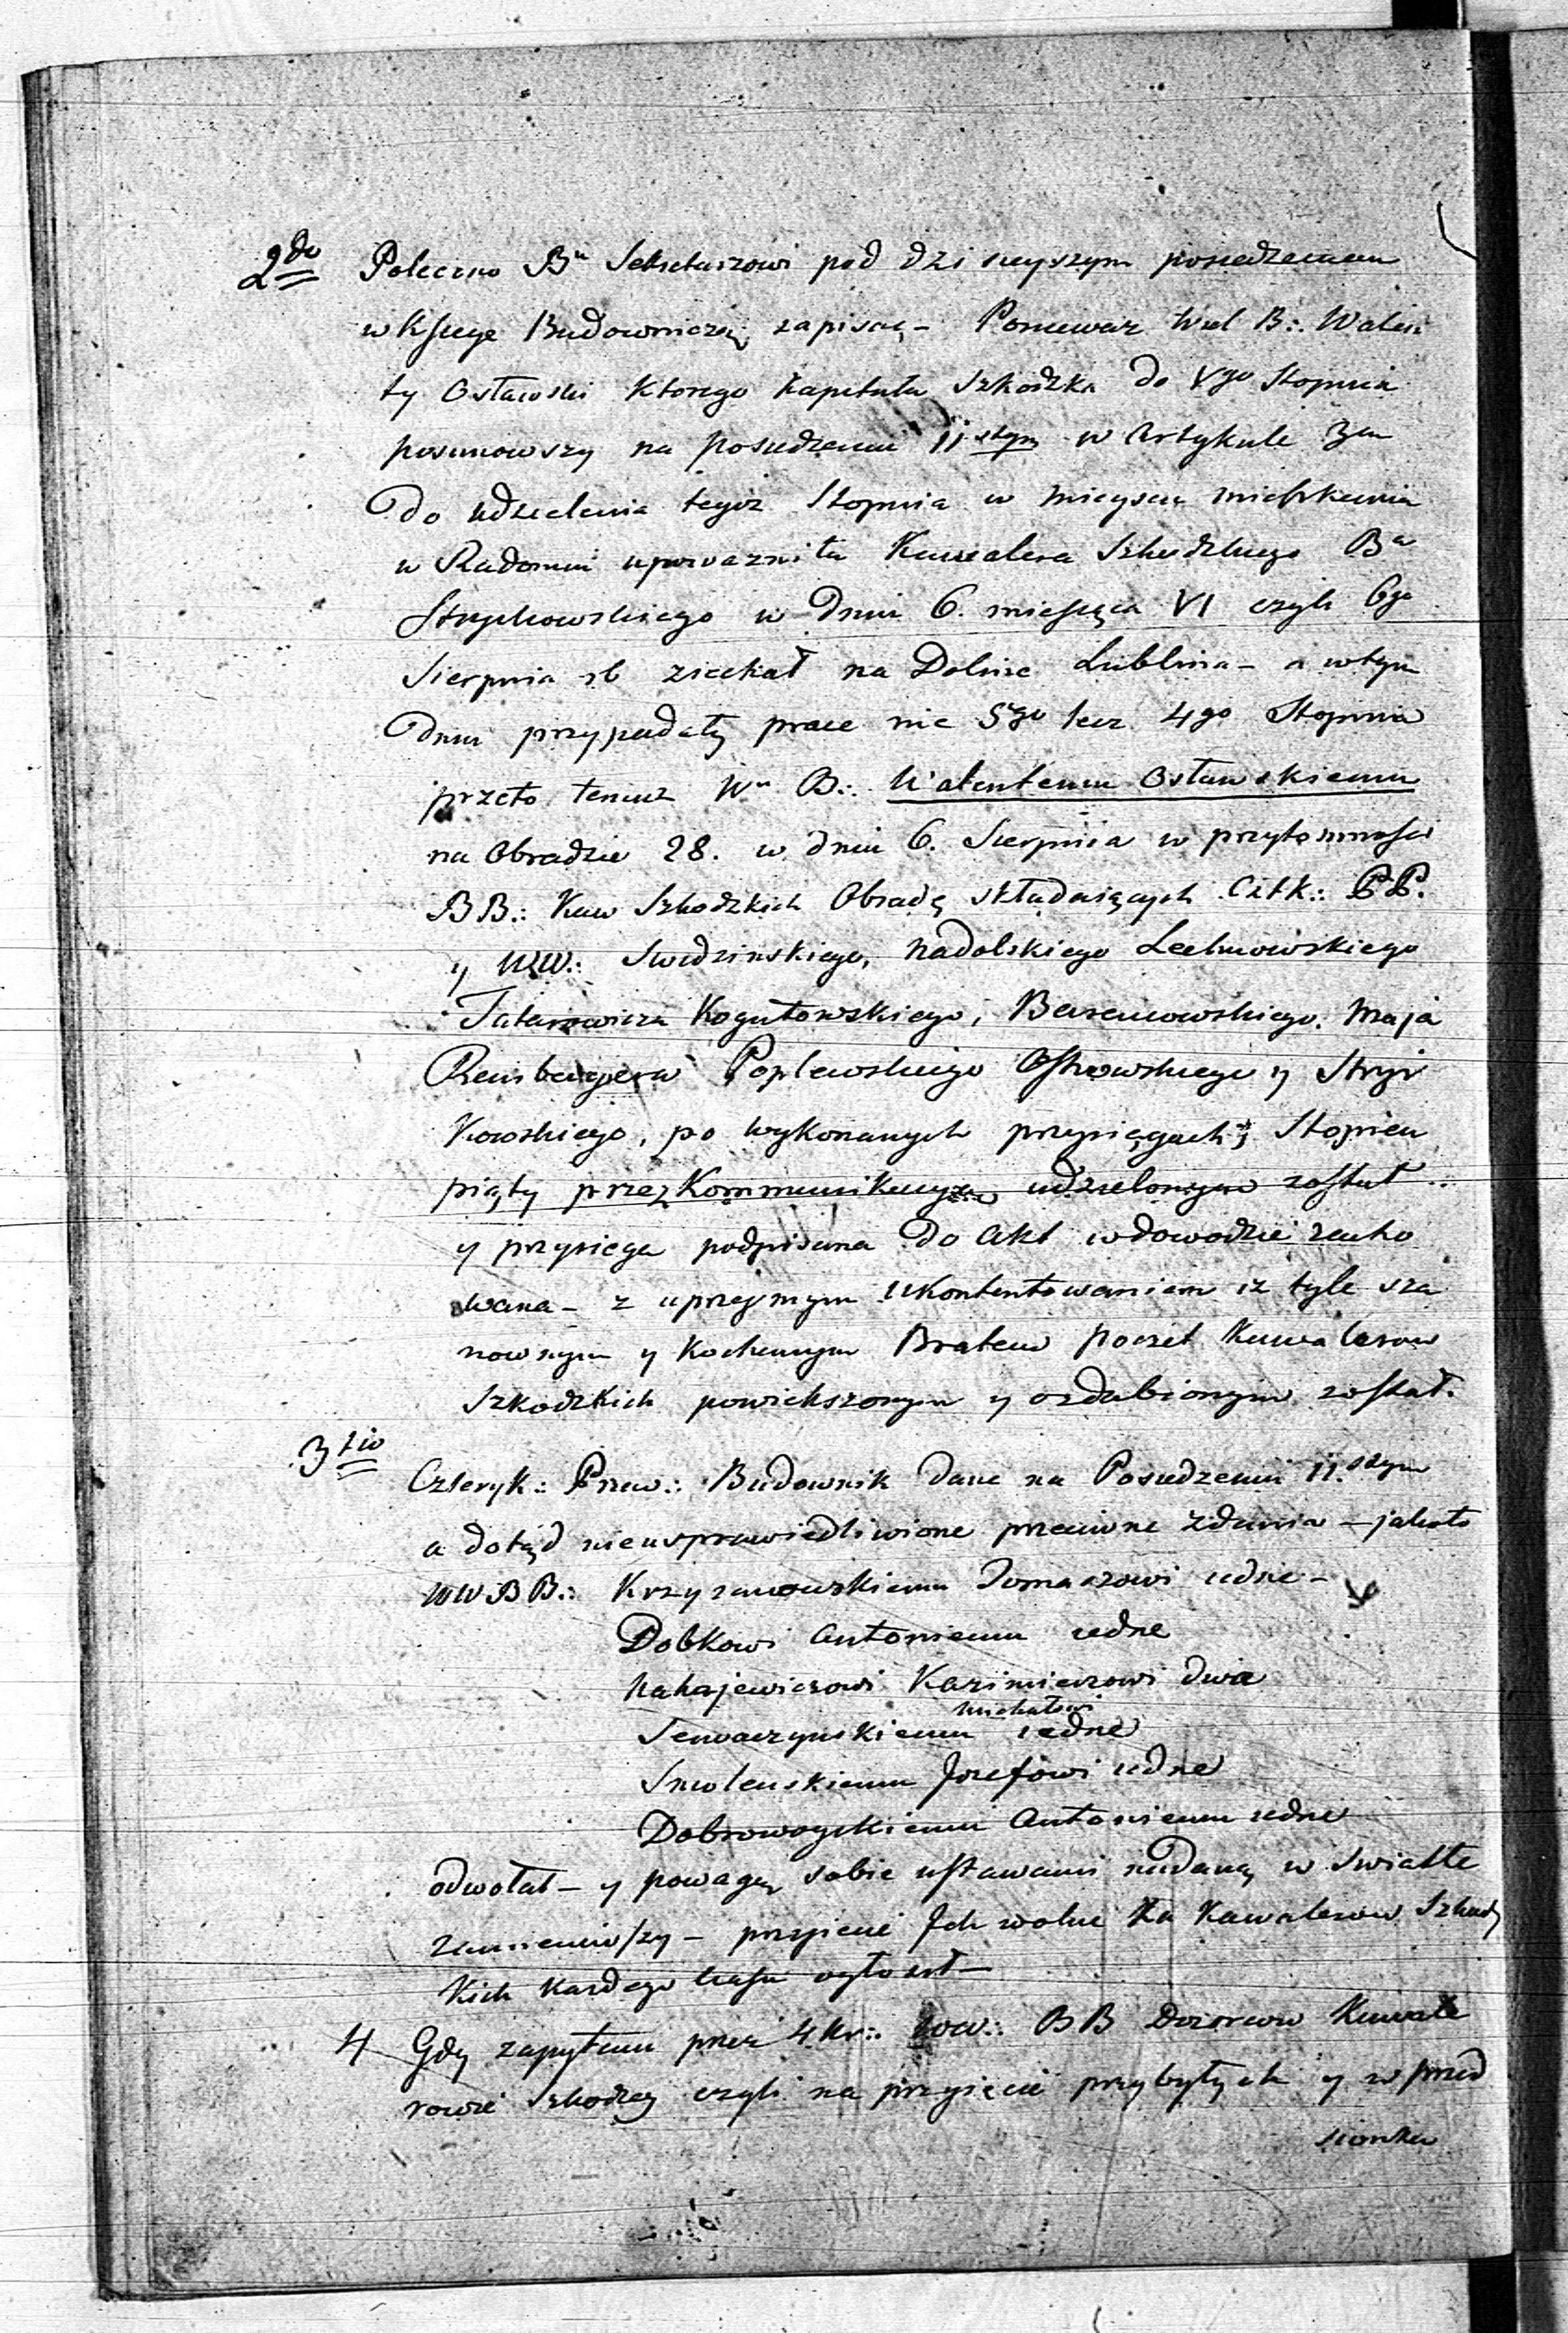 2do Polecono Bu Sekretarzowi pod dzisieyszym posiedzeniem
w Księgę Budowniczą zapisać – Ponieważ Wiel B∴ Walen
ty Ostawski ktorego Kapituła Szkodzka do Vgo Stopnia
posunowszy na posiedzeniu 11stym w Artykule 3m
Do udzielenia tegoż Stopnia w mieyscu mieszkania
w Radomiu upoważniła Kawalera Szkodzkiego Ba
Stryikowskiego w Dniu 6. miesiąca VI czyli 6go
Sierpnia rb ziechał na Dolinę Lublina – a wtym
Dniu przypadały prace nie 5go lecz 4go Stopnia
przeto temuż Wu B∴ Walentemu Ostawskiemu
na Obradzie 28. w dniu 6. Sierpnia w przytomności
BB∴ Kaw Szkodzkich Obradę składaiących Czt K∴ PP.
y WW∴ Swidzinskiego, Nadolskiego Lechnowskiego
Tatarowicza Kogutowskiego, Maja
Reinbergera Poplewskiego Ostrowskiego y Stryi
kowskiego, po wykonanych przysięgach Stopien
piąty przez Kommunikacyą udzielonym został
y przysiega podpisana do Akt w dowodzie zacho
wana – z uprzejmym ukontentowaniem iż tyle sza
nownym y kochanym Bratem poczet Kawalerow
Szkodzkich powiekszonym y ozdobionym został.
3tio Czteryk∴ Praw∴ Budownik dane na Posiedzeniu 11.stym
a dotąd nieusprawiedliwione przeciwne zdania – jakoto
WW BB∴ Krzyzanowskiemu Tomaszowi iedne –
Dobkowi Antoniemu iedne
Nahajewiczowi Kazimierzowi dwie
Michałowi
iedne
Smolenskiemu Jozefowi iedne
Dobrowoyskiemu Antoniemu iedne
odwołał – y powagą sobie ustawami nadaną w Swiatłe
zamieniwszy – przyięcie Ich wolne na Kawalerow Szkodz
kich każdego czasu ogłosił –
4 Gdy zapytani przez 4 Kr∴ BB Dozorców Kawale
rowie Szkodzcy czyli na przyięcie przybyłych y w przed
sionku